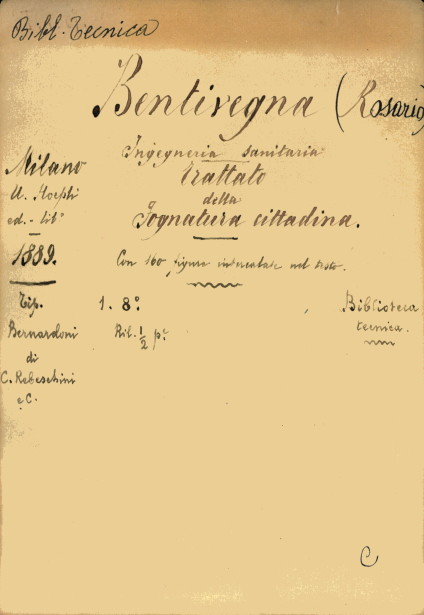 Bibl. Tecnica
Bentivegna (Rosario)
Ingegneria sanitaria
Trattato
della
Fognatura cittadina.
Con 160 figure intercalate nel testo.
Milano
U. Hoepli
ed.-lib.
1889.
Tip.
Bernardoni
di
C. Rebeschini
e C.
1. 8.°
Ril. 1/2 p.
Biblioteca
tecnica.
C